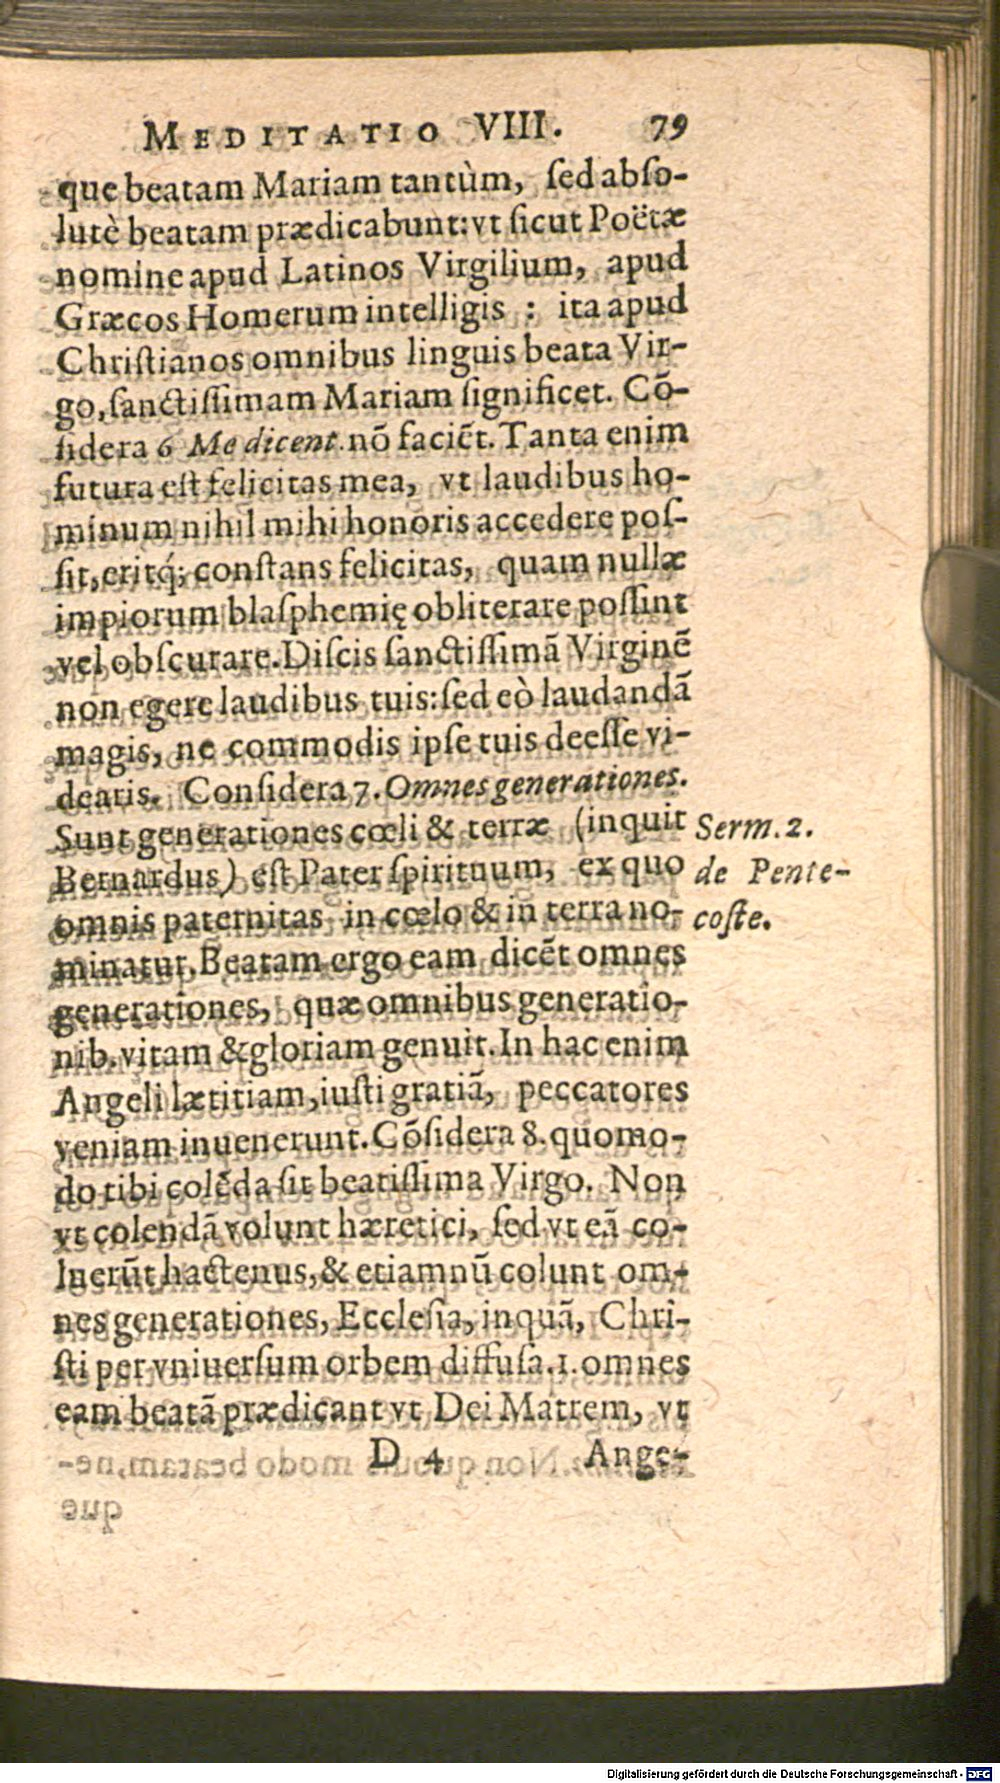 MEDITATIO VIII. 79
que beatam Mariam tantùm, ſed abſo-
lutè beatam prædicabunt: vt ſicut Poëtæ
nomine apud Latinos Virgilium, apud
Græcos Homerum intelligis : ita apud
Chriſtianos omnibus linguis beata Vir-
go, ſanctiſſimam Mariam ſignificet. Cō-
ſidera 6 Me dicent. nō faciēt. Tanta enim
futura eſt felicitas mea, vt laudibus ho-
minum nihil mihi honoris accedere poſ-
ſit, eritq́; conſtans felicitas, quam nullæ
impiorum blaſphemię obliterare poſſint
vel obſcurare. Diſcis ſanctiſſimā Virginē
non egere laudibus tuis: ſed eò laudandā
magis, ne commodis ipſe tuis deeſſe vi-
dearis. Conſidera 7. Omnes generationes.
Sunt generationes cœli & terræ (inquit
Bernardus) eſt Pater ſpirituum, ex quo
omnis paternitas in cœlo & in terra no-
minatur. Beatam ergo eam dicēt omnes
generationes, quæ omnibus generatio-
nib. vitam & gloriam genuit. In hac enim
Angeli lætitiam, iuſti gratiā, peccatores
veniam inuenerunt. Cōſidera 8. quomo-
do tibi colēda ſit beatiſſima Virgo. Non
vt colendā volunt hæretici, ſed vt eā co-
luerūt hactenus, & etiamnū colunt om-
nes generationes, Eccleſia, inquā, Chri-
ſti per vniuerſum orbem diffuſa. 1. omnes
eam beatā prædicant vt Dei Matrem, vt
D 4 Ange-
Serm. 2.
de Pente-
coſte.
Digitalisierung gefördert durch die Deutsche Forschungsgemeinschaft - DFG